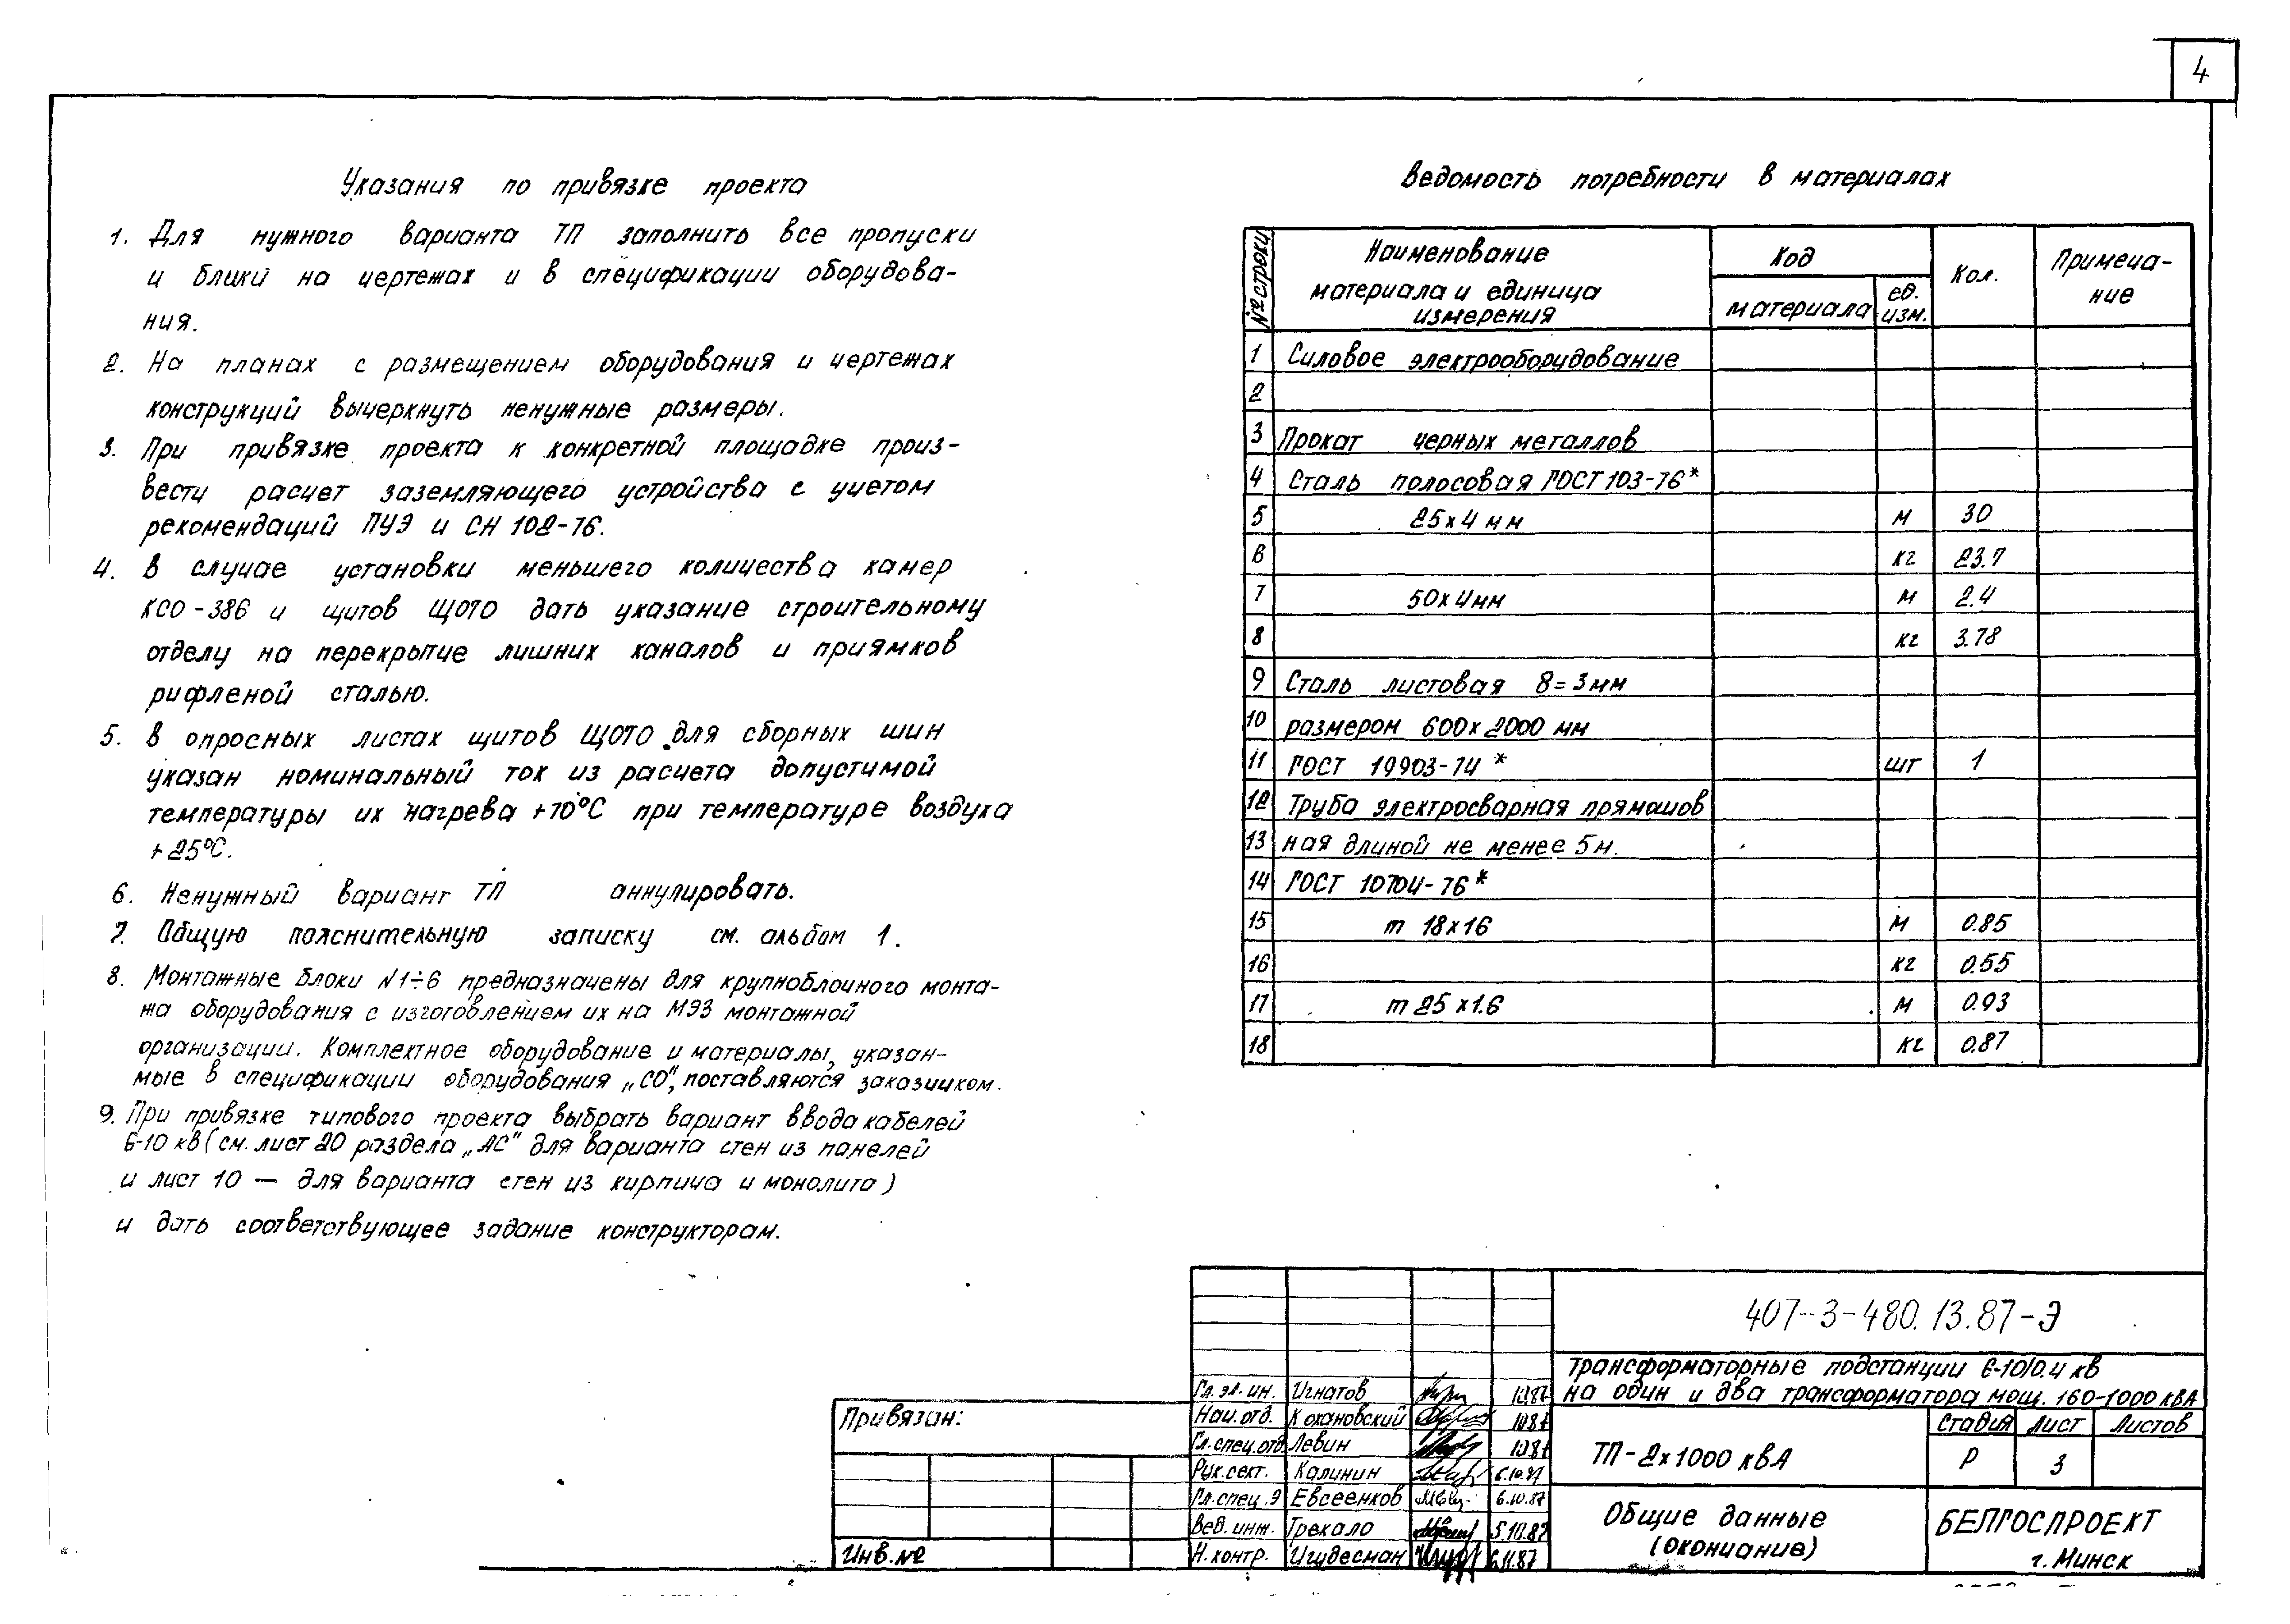 4
Указания по привязке проекта
1. Для нужного варианта ТП заполнить все пропуски
и блики на чертежах и в спецификации оборудова-
ния.
2. На планах с размещением оборудования и чертежах
конструкций вычеркнуть ненужные размеры.
3. При привязке проекта к конкретной площадке произ-
вести расчет заземляющего устройства с учетом
рекомендаций ПУЭ и СН 102-76.
4. В случае установки меньшего количества камер
КСО-386 и щитов ЩО70 дать указание строительному
отделу на перекрытие лишних каналов и приямков
рифленой сталью.
5. В опросных листах щитов ЩО70 для сборных шин
указан номинальный ток из расчета допустимой
температуры их нагрева +70°С при температуре воздуха
+25°С.
6. Ненужный вариант ТП аннулировать.
7. Общую пояснительную записку см. альбом 1.
8. Монтажные блоки N1÷6 предназначены для крупноблочного монта-
жа оборудования с изготовлением их на МЭЗ монтажной
организации. Комплектное оборудование и материалы, указан-
мые в спецификации оборудования „СО", поставляются заказчиком.
9. При привязке типового проекта выбрать вариант ввода кабелей
6-10 кВ (см. лист 20 раздела „АС" для варианта стен из панелей
и лист 10 — для варианта стен из кирпича и монолита)
и дать соответствующее задание конструкторам.
Ведомость потребности в материалах
№ строки Наименование материала и единица измерения Код материала ед. изм. Кол. Примеча-ние
1 Силовое электрооборудование
2
3 Прокат черных металлов
4 Сталь полосовая ГОСТ 103-76*
5 25х4 мм м 30
6 кг 23.7
7 50х4мм м 2.4
8 кг 3.78
9 Сталь листовая δ=3мм
10 размером 600х2000 мм
11 ГОСТ 19903-74 * шт 1
12 Труба электросварная прямошов
13 ная длиной не менее 5м.
14 ГОСТ 10704-76*
15 т 18х16 м 0.85
16 кг 0.55
17 т 25х1.6 м 0.93
18 кг 0.87
407-3-480.13.87-Э
Трансформаторные подстанции 6-10/0.4 кВ
на один и два трансформатора мощ. 160-1000 кВА
Гл. эл. ин. Игнатов 10.87
Нач. отд. Кохановский 10.87
Гл. спец. отд. Левин 10.87
Рук. сект. Калинин 6.10.87
Гл. спец. Э Евсеенков 6.10.87
Вед. инж. Трекало 5.10.87
Н. контр. Игудесман 6.11.87
ТП-2х1000 кВА
Стадия Лист Листов
Р 3
Общие данные
(окончание)
БЕЛГОСПРОЕКТ
г. Минск
Привязан:
Инв. №